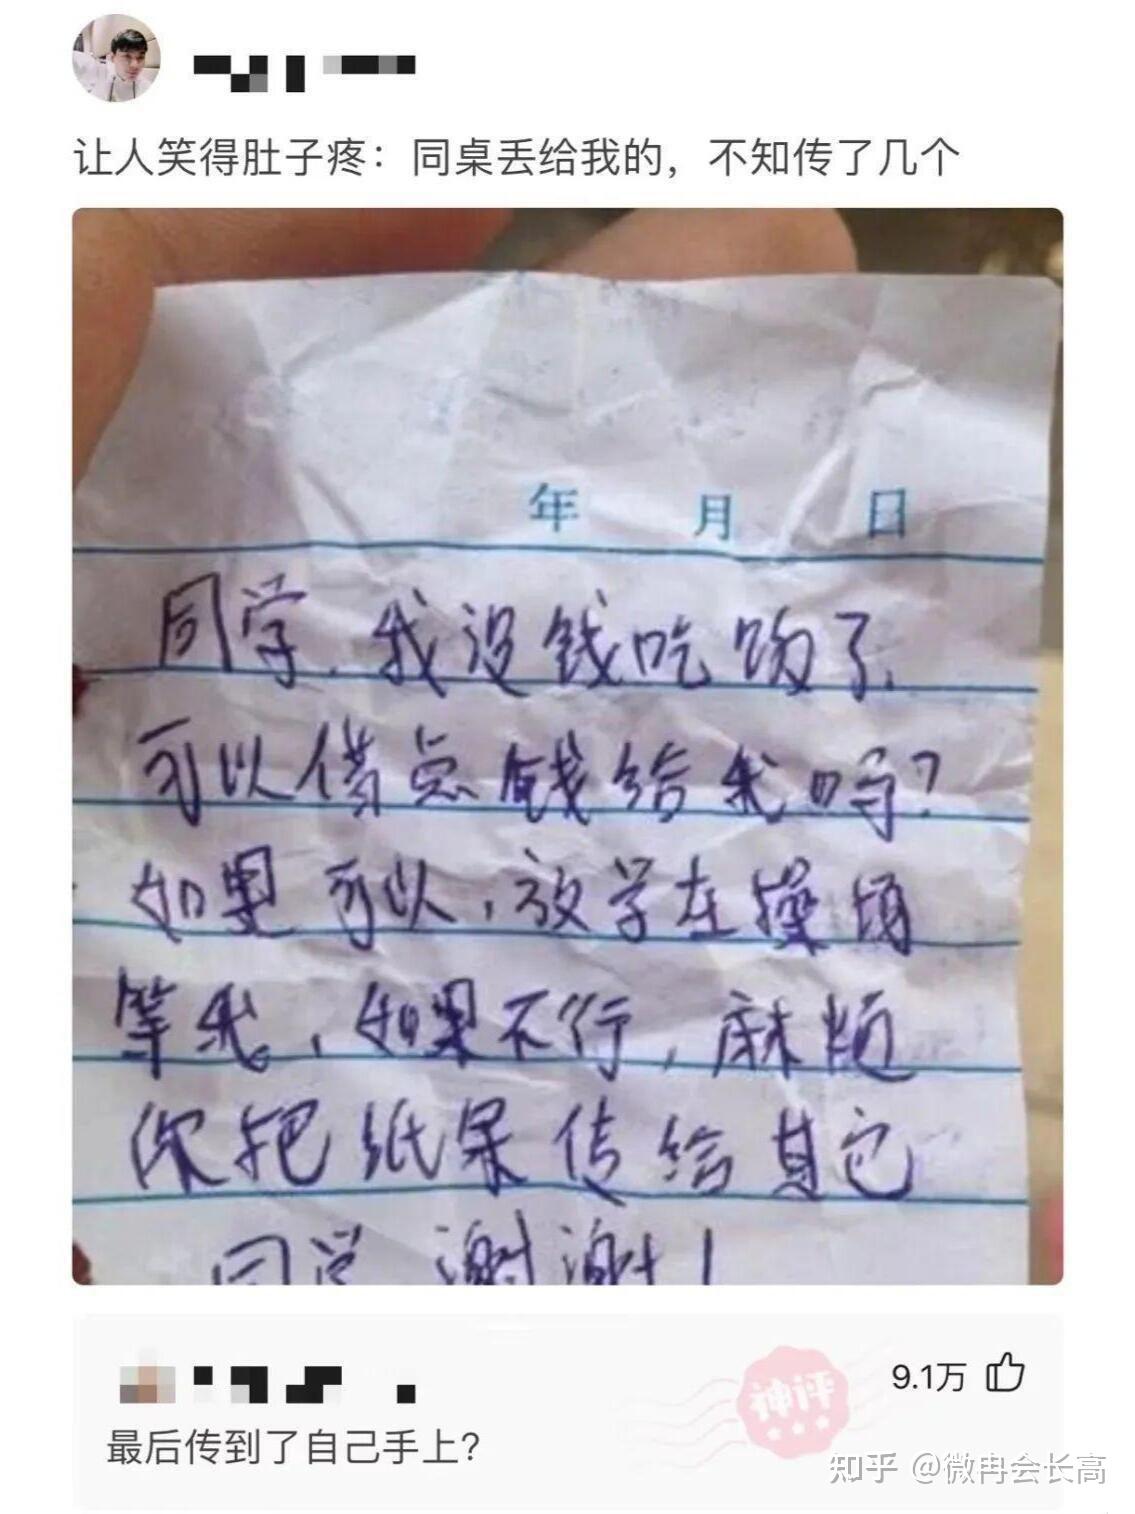 让人笑得肚子疼：同桌丢给我的，不知传了几个
年 月 日
同学，我没钱吃饭了，
可以借点钱给我吗？
如果可以，放学在操场
等我，如果不行，麻烦
你把纸条传给其它
同学 谢谢！
神评
9.1万
最后传到了自己手上？
知乎 @微冉会长高